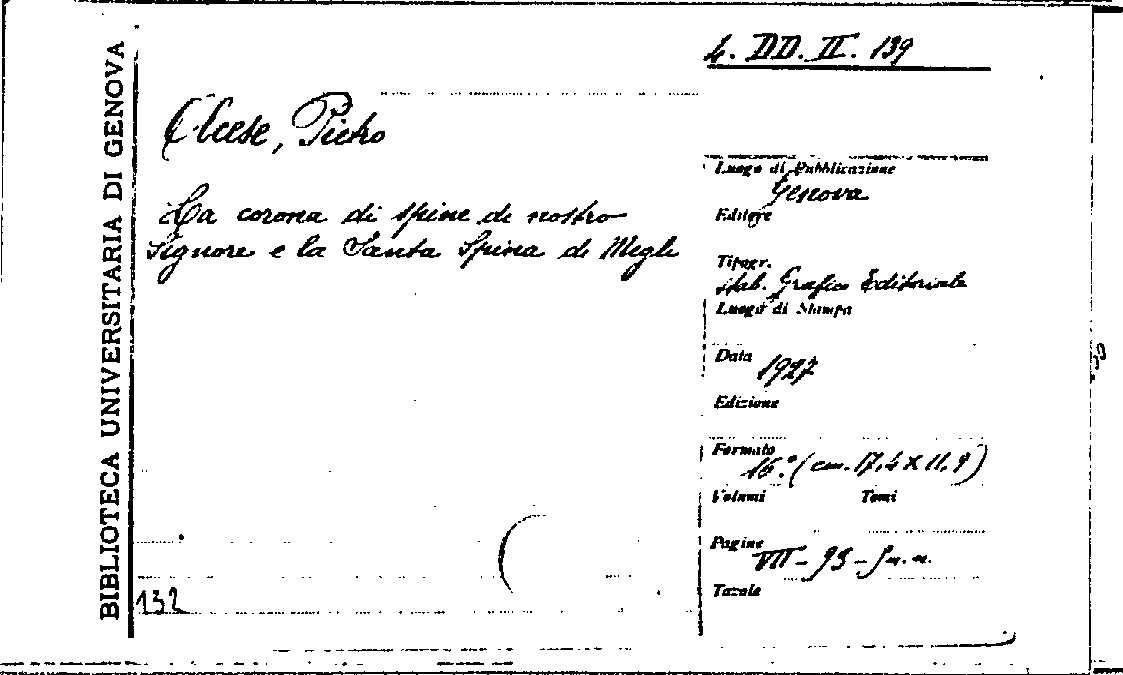 BIBLIOTECA UNIVERSITARIA DI GENOVA
4. DD. II. 139
Olcese, Pietro
La corona di spine di nostro
Signore e la Santa Spina di Megli
Luogo di Pubblicazione
Genova
Editore
Tipogr.
Stab. Grafico Editoriale
Luogo di Stampa
Data
1927
Edizione
Formato
16.° (cm. 17,4 X 11,9)
Volumi Tomi
Pagine
VII - 93 -
Tavole
132